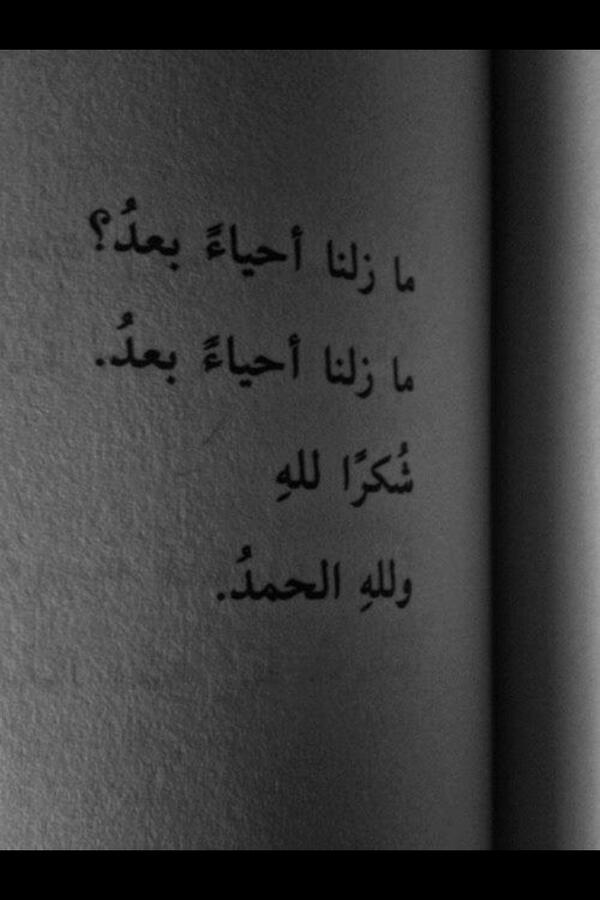 ما زلنا أحياءً بعدُ؟
ما زلنا أحياءً بعدُ.
شُكرًا للهِ
وللهِ الحمدُ.